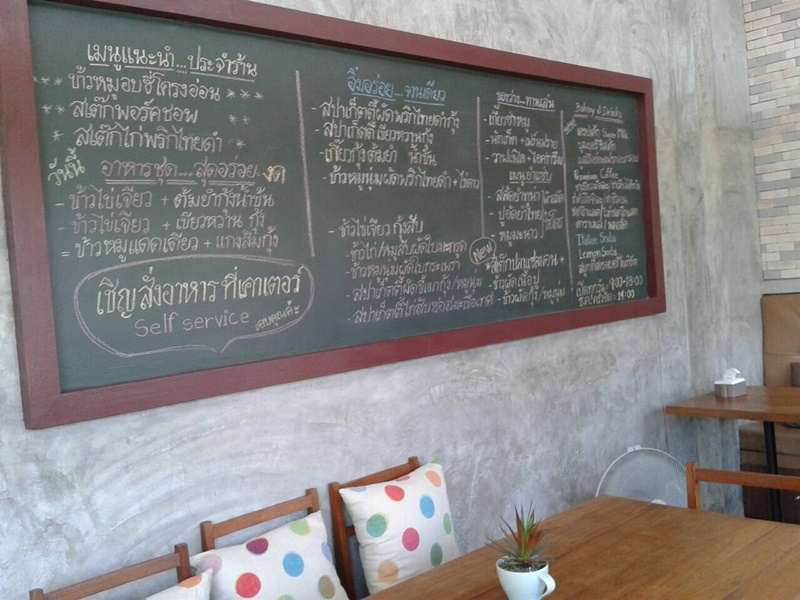 เมนูแนะนำ...ประจำร้าน
** ข้าวหมูอบซี่โครงอ่อน **
* สเต๊กพอร์คชอพ **
* สเต๊กไก่พริกไทยดำ *
วันนี้ อาหารชุด....สุดอร่อย งด
- ข้าวไข่เจียว + ต้มยำกุ้งน้ำข้น
- ข้าวไข่เจียว + เขียวหวาน กุ้ง
= ข้าวหมูแดดเดียว + แกงส้มกุ้ง
เชิญสั่งอาหาร ที่เคาเตอร์
Self service
ขอบคุณค่ะ
อิ่มอร่อย....จานเดียว
- สปาเก็ตตี้ผัดพริกไทยดำกุ้ง
- สปาเก็ตตี้เขียวหวานกุ้ง
- เกี๊ยวกุ้งต้มยำ น้ำข้น
- ข้าวหมูนุ่มผัดพริกไทยดำ + ไข่ดาว
- ข้าวไข่เจียว กุ้งสับ
- ข้าวไก่/หมูสับผัดใบมะกรูด
- ข้าวหมูนุ่มผัดใบกระเพรา
- สปาเก็ตตี้ผัดขี้เมากุ้ง/หมูนุ่ม
- สปาเก็ตตี้ไก่สับซอสมะเขือเทศ
ของว่าง...ทานเล่น
- เกี๊ยวซ่าหมู
- นักเก็ต + เฟร้นฟราย
เมนูยำแซบ
- ปูอัดยำไทย
- หมูมะนาว
New
*สเต็กปลาแซลมอน*
- ข้าวผัดเนื้อปู
- ข้าวผัดกุ้ง/หมูนุ่ม
Bakery & Drinks
Coffee
Italian Soda
Lemon Soda
เปิดทุกวัน 9.00-18.00